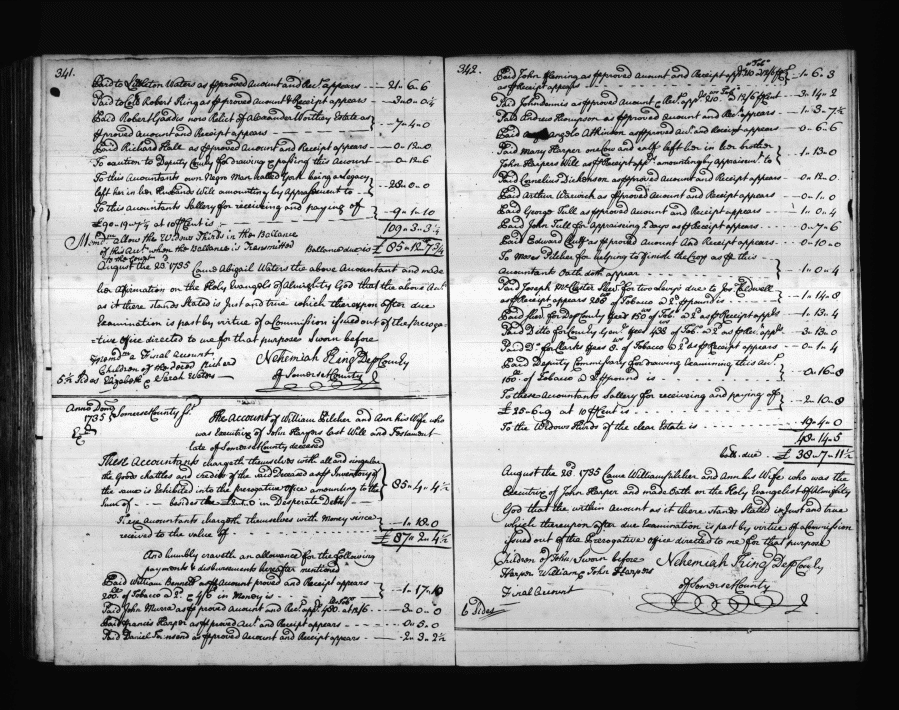 341.
Paid to Littleton Waters as p approved Account and Rec.t appears — 21-6-6
Paid to Col.o Robert King as p approved Account & Receipt appears — 3-0-0½
Paid Robert Gaddis who's Relict of Alexander Worthley Estate as
p proved Account and Receipt appears — 7-4-0
Paid Richard Hall as p proved Account and Receipt appears — 0-12-0
To caution to Deputy Comiss.y for drawing & passing this Account — 0-12-6
To this Accountants own Negro Man called York being a Legacy
left her in her Husbands Will amounting by Appraisement to — 28-0-0
To this Accountants Sallery for receiving and paying of
£90-19-7½ at 10 p Cent is — 9-1-10
109-3-3¼
allow the Widows Thirds in the Ballance
of this Acc.t when the Ballance is Transmitted
to the Court
Ballance due is £85-12-7¾
August the 23.d 1735 Came Abigail Waters the above Accountant and made
her Affirmation on the Holy Evangels of Almighty God that the above Acc.t
as it there stands Stated is Just and true which thereupon after due
Examination is past by virtue of a Commission issued out of the Preroga-
-tive Office directed to me for that purpose Sworn before
a Final Account
Children of the Dece'd Richard
Elizabeth & Sarah Waters
Nehemiah King Dep Comiss.y
of Somerset County
Anno Dom.i
1735
Somerset County ss.t
The Account of William Pilcher and Ann his Wife who
was Executrix of John Harpers Last Will and Testament
late of Somerset County deceased
These Accountants chargeth themselves with all and singular
the Goods chattles and credits of the said Deceased as p Inventory of
the same is Exhibited into the Prerogative Office amounting to the
Sum of — besides the in Desperate Debts — 85-4-4½
These Accountants chargeth themselves with Money since
received to the value of — 1-18-0
£87-2-4½
And humbly craveth an allowance for the following
payments & disbursments hereafter mentioned
Paid William Bennet as p Account proved and Receipt appears
200 of Tobacco in Money is — 1-17-10
Paid John Murra as p approved Account and Rec.t app.s 480 at 12/6 — 3-0-0
Paid Francis Harper as p approved Acc.t and Receipt appears — 0-5-0
Paid Daniel as p approved Account and Receipt appears — 2-3-2½
342.
Paid John Fleming as p approved Account and Receipt app.s 210 @ 12/6 p C.t
as p Receipt appears — 1-6-3
Paid John Dennis as p approved Account & Rec.t app.s @ 12/6 p Cent — 3-14-2
Paid Andrew Thompson as p approved Account and Rec.t appears — 1-3-7½
Paid Angelo Atkinson as p approved Acc.t and Receipt appears — 0-6-6
Paid Mary Harper one Cow and calf left her in her brother
John Harpers Will as p Receipt app.s amounting by appraisem.t to — 1-13-0
Paid Cornelius Dickenson as p approved Account and Receipt appears — 0-12-0
Paid Arthur Warwick as p approved Account and Receipt appears — 0-1-0
Paid George Tull as p approved Account and Receipt appears — 1-0-4
Paid John Tull for Appraising 2 days as p Receipt appears — 0-7-6
Paid Edward as p approved Account And Receipt appears — 0-10-0
To Moses Pilcher for helping to finish the Crop as p this
Accountants Oath doth appear — 1-0-4
Paid Joseph M.cClyster Sher.f for two Levys due to Jos Caldwell
as p Receipt appears 200 of Tobacco @ 2.d p pound is — 1-14-8
Paid Sher.f for Dep Comiss.y fees 150 of Tob.o @ 2.d as p Receipt app.s — 1-13-4
Paid Ditto for Comiss.y Gen.l fees 438 of Tob.o @ 2.d as p Rec.t app.s — 3-13-0
Paid D.o for Clarks fees 8 of Tobacco @ 2.d as p Receipt appears — 0-1-4
Paid Deputy Commissary for drawing examining this Acc.t
100 of Tobacco @ 2.d p pound is — 0-16-8
To these Accountants Sallery for receiving and paying of
£25-6-9 at 10 p Cent is — 2-10-8
To the Widows thirds of the clear Estate is — 19-4-0
48-14-5
ball. due — £38-7-11½
August the 23.d 1735 Came William Pilcher and Ann his Wife who was the
Executrix of John Harper and made Oath on the Holy Evangelist of Almighty
God that the within Account as it there stands Stated is Just and true
which thereupon after due Examination is past by virtue of a Commission
issued out of the Prerogative Office directed to me for that purpose
Children of John Sworn before
Harper William & John Harpers
Final Account
Nehemiah King Dep Comiss.y
of Somerset County
6 Sides